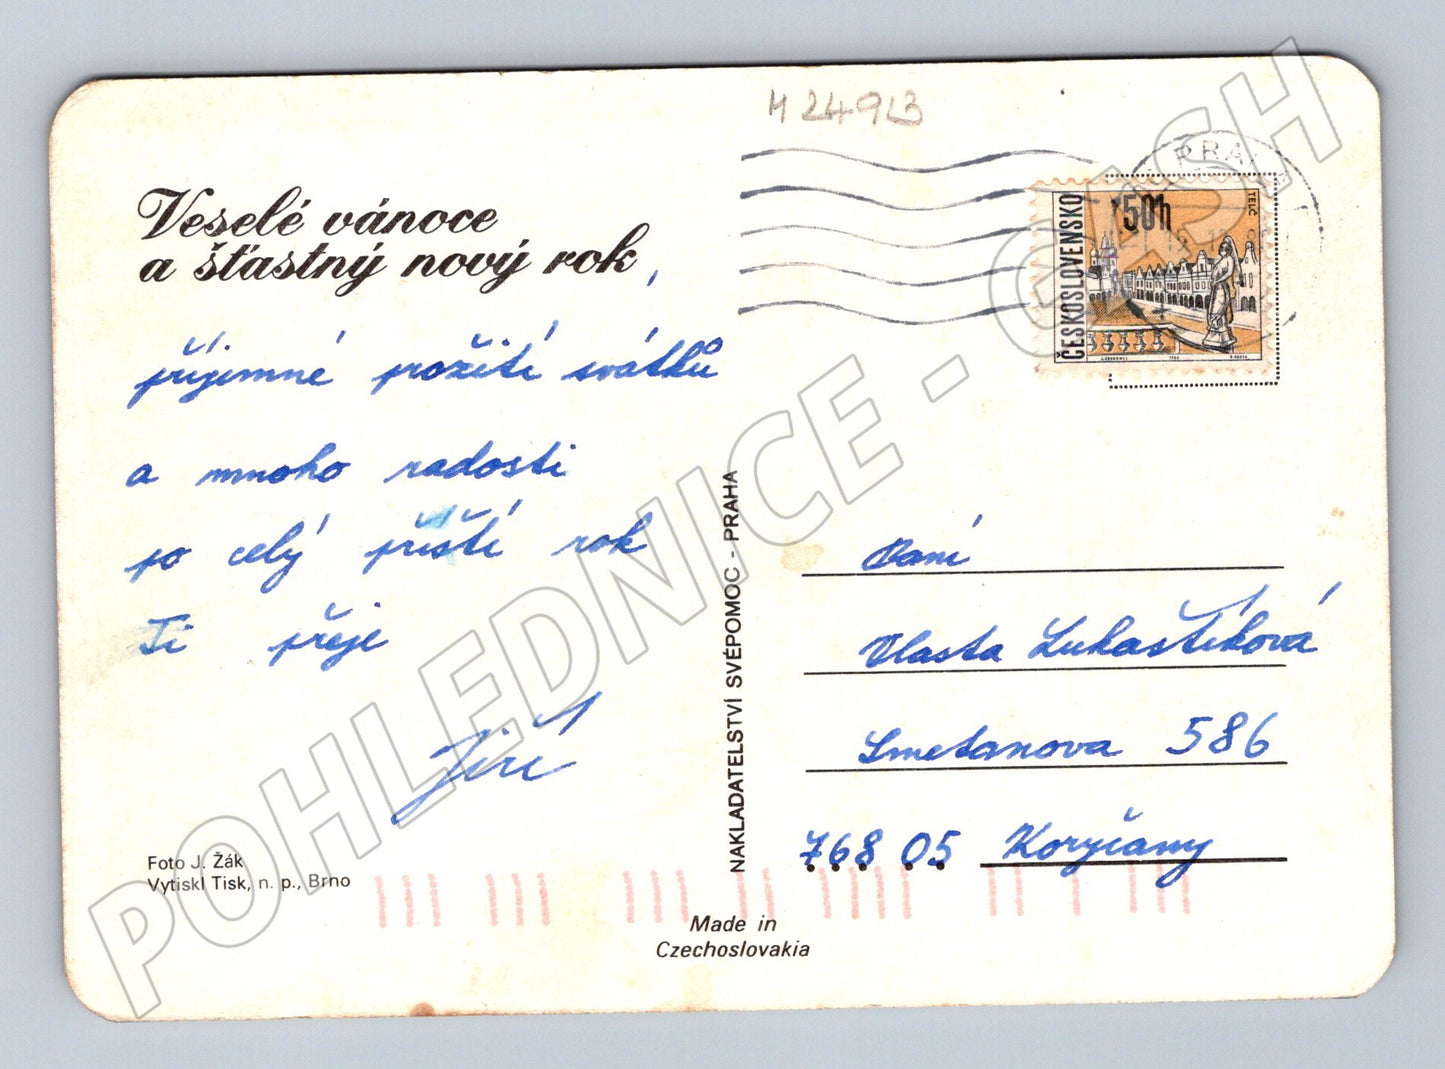 H 24913
Veselé vánoce
a šťastný nový rok,
příjemné prožití svátků
a mnoho radosti
po celý příští rok
Ti přeje
Jiří
Foto J. Žák
Vytiskl Tisk, n. p., Brno
NAKLADATELSTVÍ SVÉPOMOC - PRAHA
Made in
Czechoslovakia
PRA
ČESKOSLOVENSKO
50h
TELČ
Paní
Vlasta Lukaštíková
Smetanova 586
768 05 Koryčany
POHLEDNICE - CASH